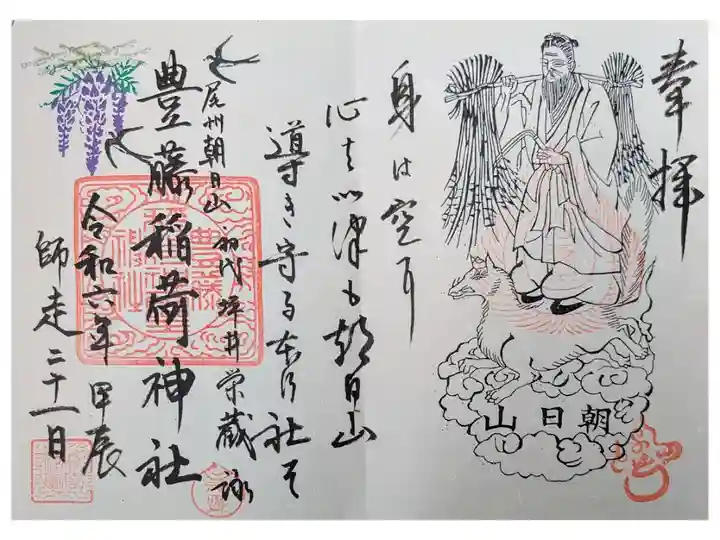 奉拝
山日朝
身は空
心は いつも朝日山
導き守る 社そ
尾州朝日山 初代 坪井栄蔵 詠
豊藤稲荷神社
豊藤
令和六年 甲辰
師走二十一日